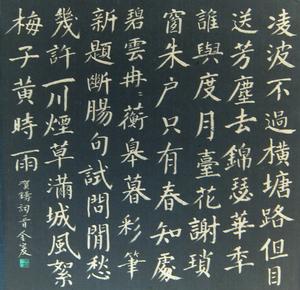 凌波不過橫塘路但目
送芳塵去錦瑟華秊
誰與度月臺花謝瑣
窗朱户只有春知處
碧雲冉〻蘅皋暮彩筆
新題斷腸句試問閒愁
幾許一川煙草滿城風絮
梅子黃時雨
賀鑄詞